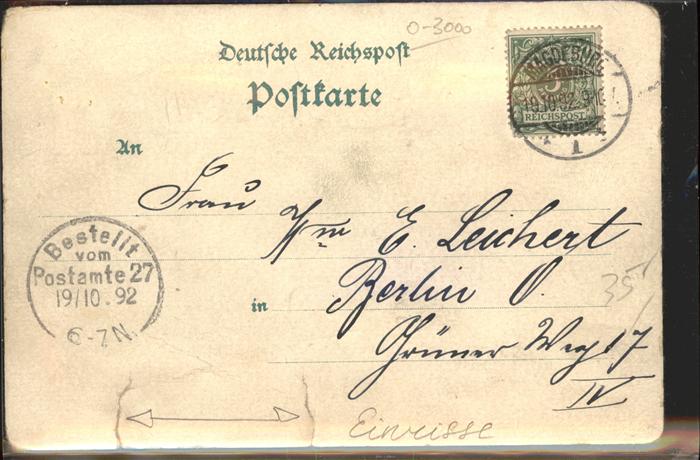 0-3000
Deutsche Reichspost
Postkarte
MAGDEBURG
19.10.92. 9-10
REICHSPOST
1
An
Frau
E. Leichert
Bestellt
vom
Postamte 27
19/10.92
6-7N.
in
Berlin O.
35
Grüner Weg 17
IV
Einrisse